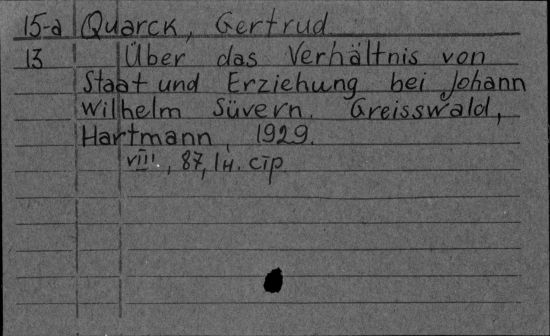 15-a Quarck, Gertrud
13 Über das Verhältnis von
Staat und Erziehung bei Johann
Wilhelm Süvern. Greisswald,
Hartmann, 1929.
VIII, 87, 1н. стр.